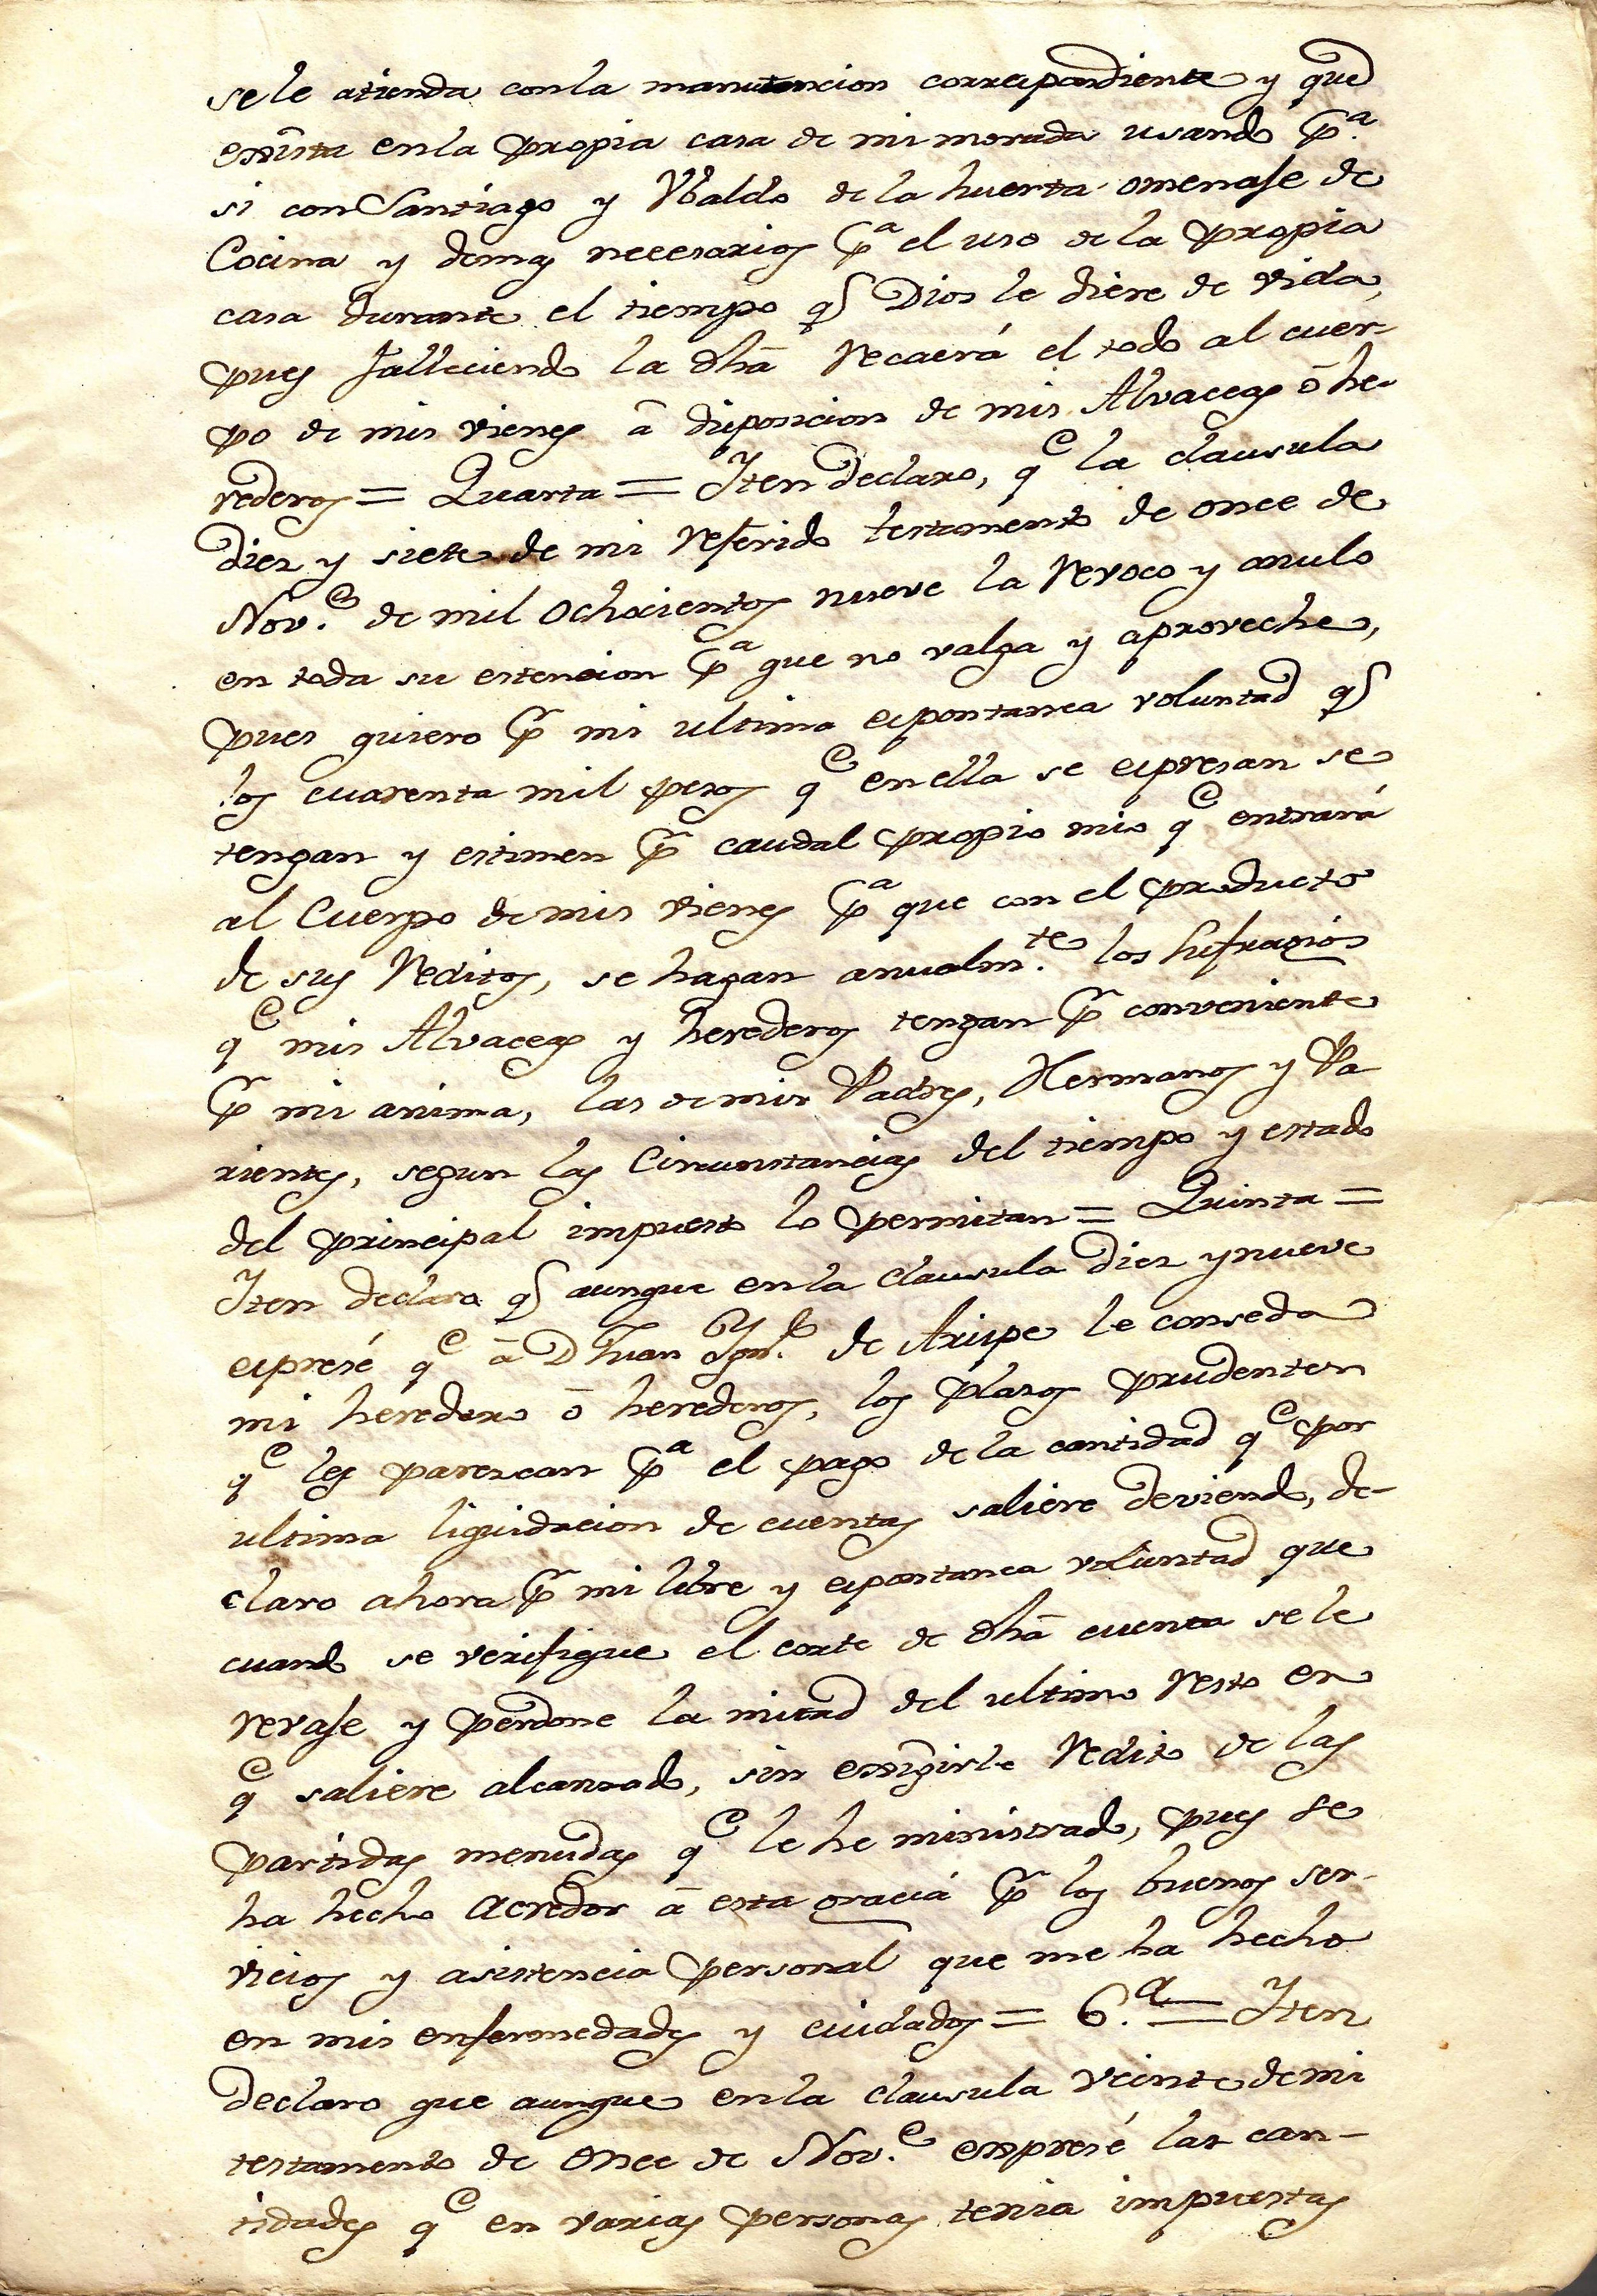 se le atienda con la manutencion correspondiente y que
exista en la propia casa de mi morada usando pª.
si con Santiago y Vbaldo de la huerta omenaje de
Cocina y demas necesarios pª el uso de la propia
casa durante el tiempo q̃ Dios le diere de vida,
pues falleciendo la dhã recaerá el todo al cuer-
po de mis vienes â disposicion de mis Alvaceas ô he-
rederos = Quarta = Iten declaro, qᵉ la clausula
diez y siete de mi referido testamento de once de
Novᵉ. de mil ochocientos nueve la revoco y anulo
en toda su estencion pª que no valga y aproveche,
pues quiero p̃ mi ultima espontanea voluntad q̃
los cuarenta mil pesos qᵉ en ella se espresan se
tengan y estimen p̃ caudal propio mio qᵉ entrará
al Cuerpo de mis vienes pª que con el producto
de sus reditos, se hagan anualmᵗᵉ. los sufragios
qᵉ mis Alvaceas y herederos tengan p̃ conveniente
p̃ mi anima, las de mis Padres, Hermanos y Pa
rientes, segun las Circunstancias del tiempo y estado
del principal impuesto lo permitan = Quinta =
Iten declaro q̃ aunque en la clausula diez y nueve
espresé qᵉ â D Juan Ignº. de Arispe le conseda
mi heredero ô herederos, los plasos prudentes
qᵉ les parezcan pª el pago de la cantidad qᵉ por
ultima liquidacion de cuentas saliere deviendo, de-
claro ahora p̃ mi libre y espontanea voluntad que
cuando se verifique el corte de dhã cuenta se le
revaje y perdone la mitad del ultimo resto en
qᵉ saliere alcanzado, sin exsigirle redito de las
partidas menudas qᵉ le he ministrado, pues se
ha hecho acredor â esta gracia p̃ los buenos ser-
vicios y asistencia personal que me ha hecho
en mis enfermedades y cuidados = 6.ª = Iten
declaro que aunque en la clausula veinte de mi
testamento de once de Novᵉ. exspresé las can-
tidades qᵉ en varias personas tenia impuestas